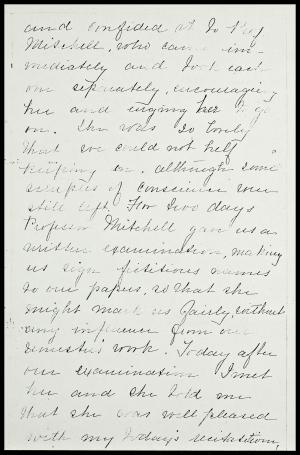 and confided it to Prof
Mitchell, who came im-
mediately and took each
one separately, encouraging
her and urging her to go
on. She was so lovely
that we could not help
keeping on, although some
scruples of conscience were
still left. For two days
Professor Mitchell gave us a
written examination, making
us sign fictitious names
to our papers, so that she
might mark us fairly, without
any influence from our
semester's work. Today after
our examination I met
her and she told me
that she was well pleased
with my today's recitation,